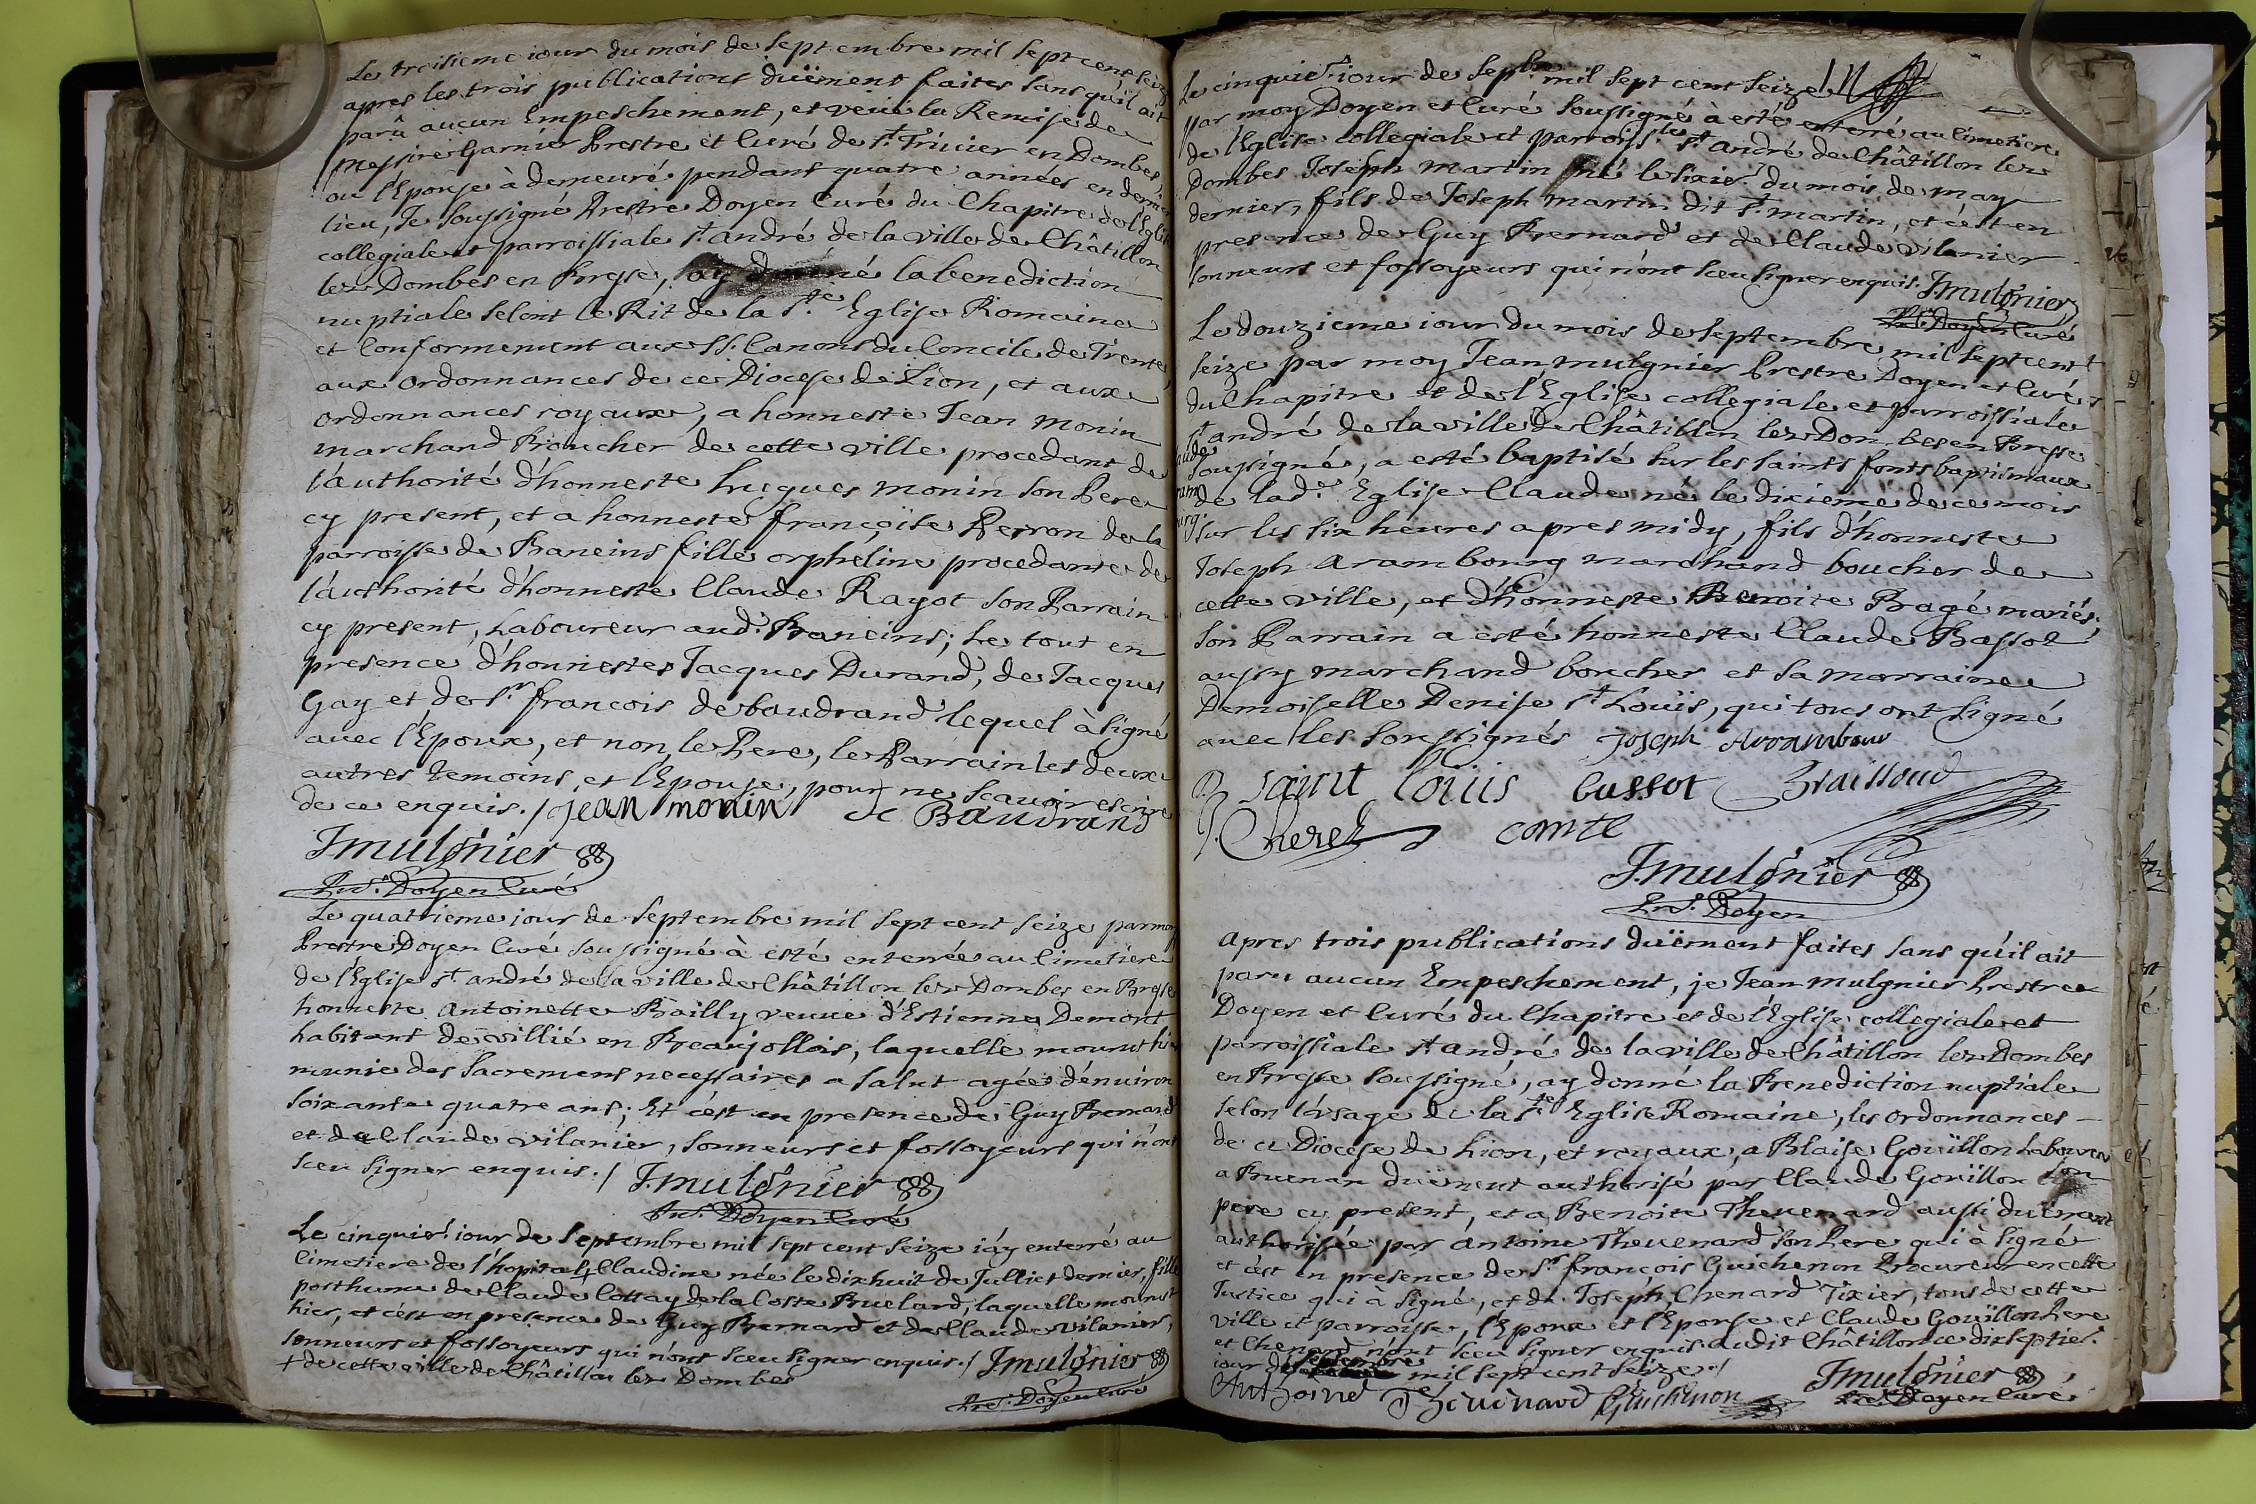 Le troisieme iour du mois de Septembre mil Sept cent Seize
apres les trois publications duëment faites sans qu'il ait
parû aucun Empeschement, et veüe la Remise de
Messire Garnier Prestre et Curé de St. Trivier en Dombes,
ou l'Epouse à demeuré pendant quatre années en dernier
lieu, Je soussigné Prestre Doyen Curé du Chapitre de l'Eglise
collegiale et parroissiale St. andré de la ville de Châtillon
lez Dombes en Bresse, ay donné la benediction
nuptiale selont le Rit de la Ste. Eglise Romaine
et Conformement aux SS. Canons du Concile de Trente,
aux ordonnances de ce Diocese de Lion, et aux
ordonnances royaux, a honneste Jean Monin
marchand Boucher de cette ville procedant de
l'authorité d'honneste hugues monin son Pere
cy present, et a honneste françoise Perron de la
parroisse de Baneins fille orpheline procedante de
l'authorité d'honneste Claude Rayot son Parrain
cy present, Laboureur aud. Baneins; Le tout en
presence d'honnestes Jacques Durand, de Jacques
Gay et de Sr. francois de baudrand lequel à signé
avec l'Epoux, et non le Pere, le Parrain les deux
autres temoins, et l'Epouse, pour ne scavoir escrire
de ce enquis. / jean monin De Baudrand
J mulgnier
Pre. Doyen Curé
Le quatrieme iour de Septembre mil Sept cent Seize par moy
Prestre Doyen Curé soussigné à esté enterrée au Cimetiere
de l'Eglise St. andré de la ville de Châtillon lez Dombes en Bresse
honneste Antoinette Bailly veuve d'Estienne Demont
habitant de villié en Beaujollois, laquelle mourut hier
munie des Sacremens necessaires a salut agée d'environ
soixante quatre ans; Et c'est en presence de Guy Bernard
et de Claude vilanier, sonneurs et fossoyeurs qui n'ont
sceu signer enquis. / J. mulgnier
Pre. Doyen Curé
Le cinquie. iour de Septembre mil Sept cent Seize i'ay enterré au
Cimetiere de l'hopital + Claudine née le dixhuit de Julliet dernier, fille
posthume de Claude Cottay de la Coste Ruelard, laquelle mourust
hier, et c'est en presence de Guy Bernard et de Claude vilanier,
sonneurs et fossoyeurs qui n'ont sceu signer enquis. / J mulgnier
+ de cette ville de Châtillon lez Dombes
Pre. Doyen Curé
Le cinquie. iour de Sepbre. mil Sept cent Seize
par moy Doyen et Curé Soussigné à esté enterré au Cimetiere
de l'Eglise Collegiale et parroissle. St. André de Châtillon lez
Dombes Joseph Martin né le sixie. du mois de may
dernier, fils de Joseph Martin dit St. martin, et c'est en
presence de Guy Bernard et de Claude vilanier
sonneurs et fossoyeurs qui n'ont sceu signer enquis. J. mulgnier
Pre. Doyen Curé
Le douzieme iour du mois de Septembre mil Sept cent
Seize par moy Jean mulgnier Prestre Doyen et Curé
du Chapitre et de l'Eglise collegiale et parroissiale
St. andré de la ville de Châtillon lez Dombes en Bresse
soussigné, a esté baptisé sur les saints fonts baptismaux
de lade. Eglise Claude né le dixieme de ce mois
sur les six heures apres midy, fils d'honneste
Joseph arambourg marchand boucher de
cette ville, et d'honneste Benoite Bragé mariés;
son Parrain a esté honneste Claude Bassot
aussy marchand boucher et sa marraine
Demoiselle Denise St. Loüis, qui tous ont signé
avec les soussignés Joseph Arrambour
D saint louis bussot Braissoud
Cherel comte
J. mulgnier
Pre. Doyen
Apres trois publications duëment faites sans qu'il ait
paru aucun Empeschement, je Jean mulgnier Prestre
Doyen et Curé du Chapitre et de l'Eglise collegiale et
parroissiale St andré de la ville de Châtillon lez Dombes
en Bresse soussigné, ay donné la Benediction nuptiale
selon l'usage de la Ste Eglise Romaine, les ordonnances
de ce Diocese de Lion, et royaux, a Blaise Goüillon Laboureur
a Buenan duëment authorisé par Claude Goüillon son
pere cy present, et a Benoite Thevenard aussi duëment
authorisée par Antoine Thevenard son Pere qui à signé
et c'est en presence de Sr. françois Guichenon Procureur en cette
Justice qui à signé, et de Joseph Chenard Tixier, tous de cette
ville et parroisse, l'Epoux et l'Epouse et Claude Goüillon Pere
et Chenard n'ont sceu signer enquis audit Châtillon ce dixseptie.
iour de septembre mil sept cent seize. /
Anthoine Thevenard Guichenon J mulgnier
Pre. Doyen Curé